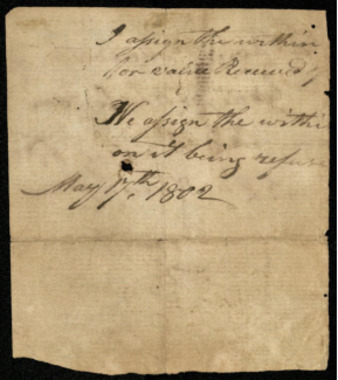 I assign the within
for value Received
We assign the withi
on it being refuse
May 17th 1802